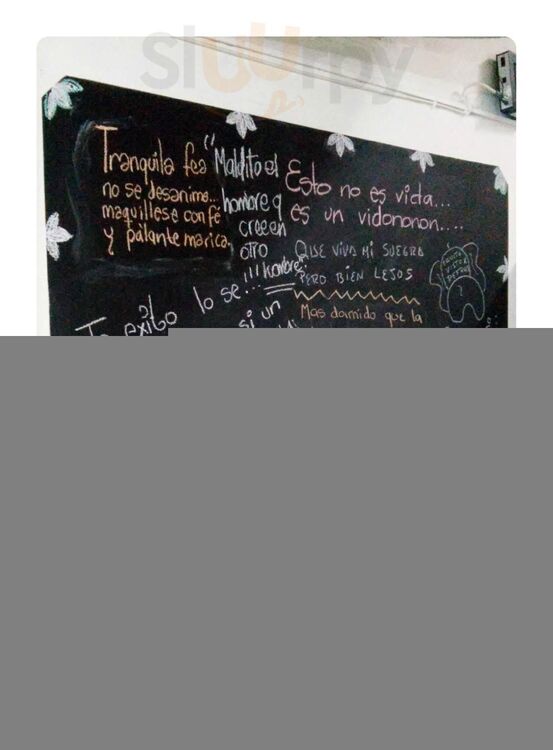 Sluurpy
Tranquila fea
no se desanime...
maquillese con fé
y palante marica,
"Maldito el
hombre q
cree en
otro
hombre"
Esto no es vida...
es un vidononon....
QUE VIVA MI SUEGRA
PERO BIEN LEJOS
Mas dormido que la
Te exito lo se!!...!!!
si un